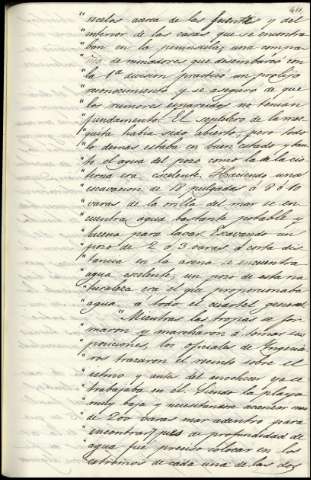 411
"recelos acerca de las fuentes y del
"interior de las casas que se encontra
"ban en la península; una compa
"ñia de minadores que desembarcó con
"la 1ª division practicó un prolijo
"reconocimiento y se aseguró de que
"los rumores esparcidos no tenian
"fundamento. El sepulcro de la mez
"quita habia sido abierto; pero todo
"lo demas estaba en buen estado y tan
"to el agua del pozo como la de la cis
"terna era excelente. Haciendo una
"excavacion de 18 pulgadas á 8 ó 10
"varas de la orilla del mar se en
"cuentra agua bastante potable y
"buena para lavar. Excavando un
"pozo de 2 ó 3 varas á corta dis
"tancia en la arena se encuentra
"agua excelente; un pozo de esta na
"turaleza era el que proporcionaba
"agua á todo el cuartel general.
"Mientras las tropas se for
"maron y marcharon á tomar sus
"posiciones, los oficiales de Ingenie
"ros trazaron el recinto sobre el
"istmo y antes del anochecer ya se
"trabajaba en él. Siendo la playa
"muy baja y necesitandose avanzar mas
"de 200 varas mar adentro para
"encontrar 7 pies de profundidad de
"agua fué preciso colocar en los
"extremos de cada una de las dos